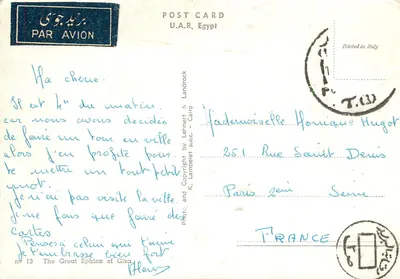 بريد جوى
PAR AVION
POST CARD
U.A.R. Egypt
Printed in Italy
T.(1)
Ma chérie.
Il est du matin
car nous avons décidés
de faire un tour en ville
alors j'en profite pour
te mettre un tout petit
mot.
Je n'ai pas visité la ville
Je ne fais que faire des
cartes
Pensera celui qui t'aime
Je t'embrasse bien fort
Photo and Copyright by Lehnert & Landrock
K. Lambelet succ. - Cairo
Mademoiselle Monique Hugot
251 Rue Saint Denis
Paris 2em Seine
FRANCE
nº 13 The Great Sphinx of Giza